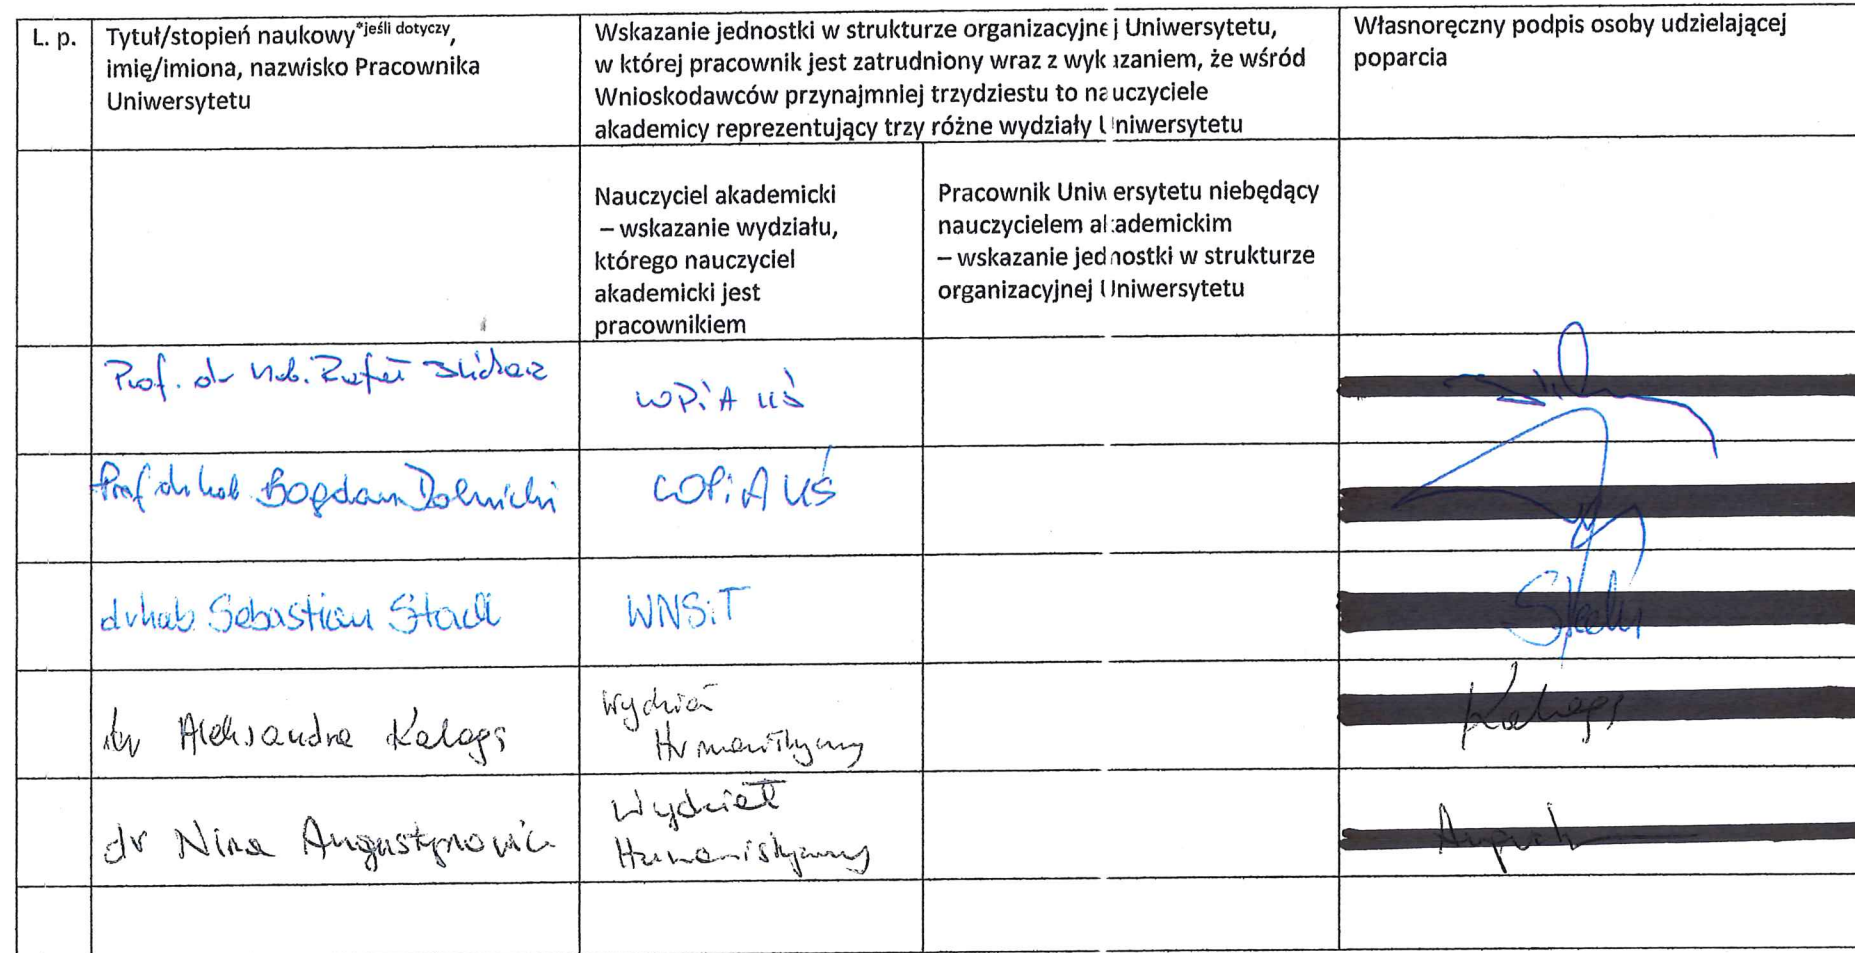 L. p.
Tytuł/stopień naukowy*jeśli dotyczy,
imię/imiona, nazwisko Pracownika
Uniwersytetu
Wskazanie jednostki w strukturze organizacyjnej Uniwersytetu,
w której pracownik jest zatrudniony wraz z wykazaniem, że wśród
Wnioskodawców przynajmniej trzydziestu to nauczyciele
akademicy reprezentujący trzy różne wydziały Uniwersytetu
Własnoręczny podpis osoby udzielającej
poparcia
Nauczyciel akademicki
– wskazanie wydziału,
którego nauczyciel
akademicki jest
pracownikiem
Pracownik Uniwersytetu niebędący
nauczycielem akademickim
– wskazanie jednostki w strukturze
organizacyjnej Uniwersytetu
Prof. dr hab. Rafał
WPiA UŚ
Prof dr hab Bogdan Dolnicki
WPiA UŚ
dr hab. Sebastian Stach
WNSiT
dr Aleksandra Kalaga
Wydział
Humanistyczny
dr Nina Augustynowicz
Wydział
Humanistyczny